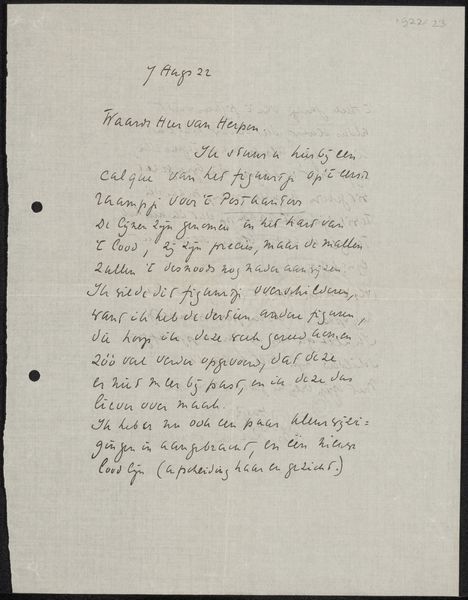 1922/23
7 Augs 22
Waarde Heer van Herpen.
Ik stuur u hierbij een
calque van het figuurtje op 't eerste
raampje voor 't Postkantoor
De lijnen zijn genomen in het hart van
't lood, zij zijn precies, maar de mallen
zullen 't desnoods nog nader aanwijzen.
Ik wilde dit figuurtje overschilderen,
want ik heb de dertien andere figuren,
die hoop ik deze week gereed komen
zóó veel verder opgevoerd, dat deze
er niet meer bij past, en ik deze dus
liever over maak.
Ik heb er nu ook een paar kleurwijzi-
gingen in aangebracht, en één nieuwe
loodlijn (afscheiding haar en gezicht.)